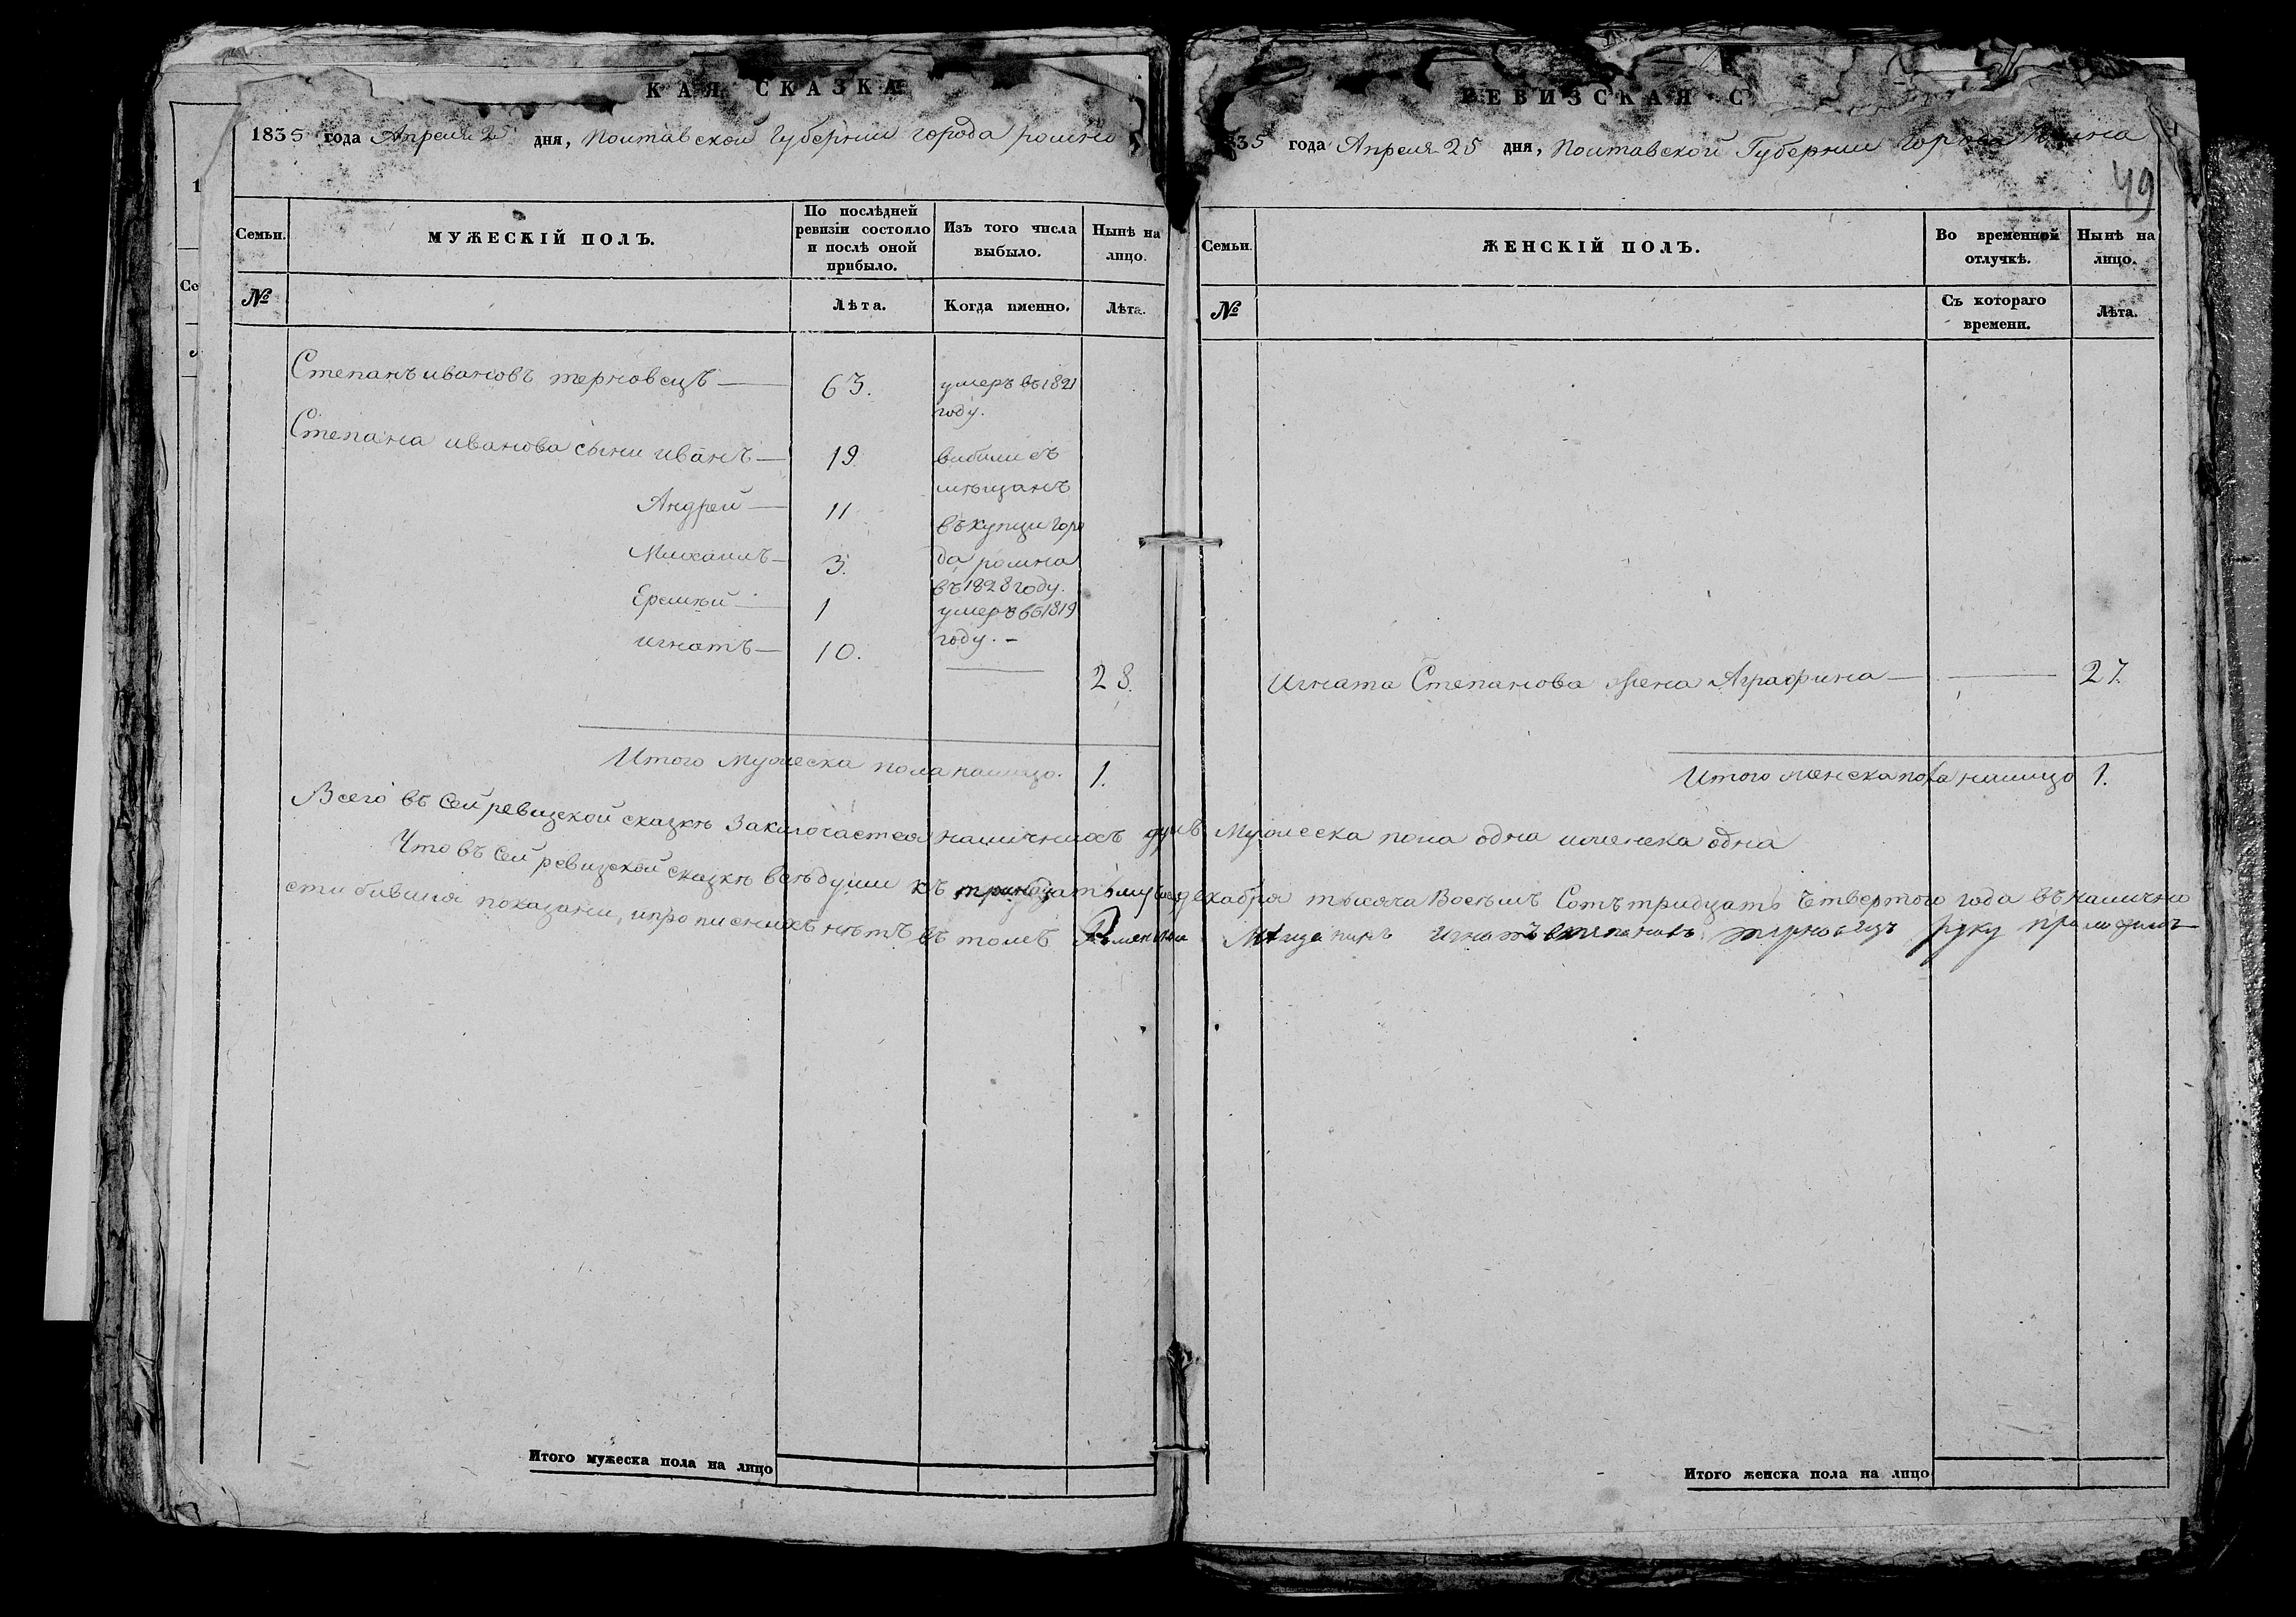 КАЯ СКАЗКА
1835 года Апреля 25 дня, Полтавской Губернии города ромна
Семьи. МУЖЕСКІЙ ПОЛЪ. По послѣдней ревизіи состояло и послѣ оной прибыло. Изъ того числа выбыло. Нынѣ на лицо.
№ Лѣта. Когда именно. Лѣта.
Степанъ ивановъ терновецъ — 63. умеръ въ 1821
году.
Степана иванова сыни иванъ — 19. вибили съ
мѣщанъ
Андрей — 11
въ купци горо
Михаилъ — 3. да ромна
въ 1828 году.
Еремѣй — 1 умеръ въ 1819
году. —
игнатъ — 10. — 28.
Итого Мужеска пола налицо. 1.
РЕВИЗСКАЯ С
1835 года Апреля 25 дня, Полтавской Губернии города Ромна
49
Семьи. ЖЕНСКІЙ ПОЛЪ. Во временной отлучкѣ. Нынѣ на лицо.
№ Съ котораго времени. Лѣта.
Игната Степанова жена Аграфина — — 27.
Итого женска пола налицо 1.
Всего въ Сей ревизской сказкѣ Заключается наличнихъ душъ Мужеска пола одна иженска одна
Что въ Сей ревизской сказкѣ всѣ души къ декабря тысяча Восемъ Сотъ тридцать Четвертого года въ налично
сти бившия показани, ипрописнихъ нѣтъ въ томъ Роменский Мѣщанинъ Игнатъ степановъ терновецъ руку приложилъ
Итого мужеска пола на лицо
Итого женска пола на лицо